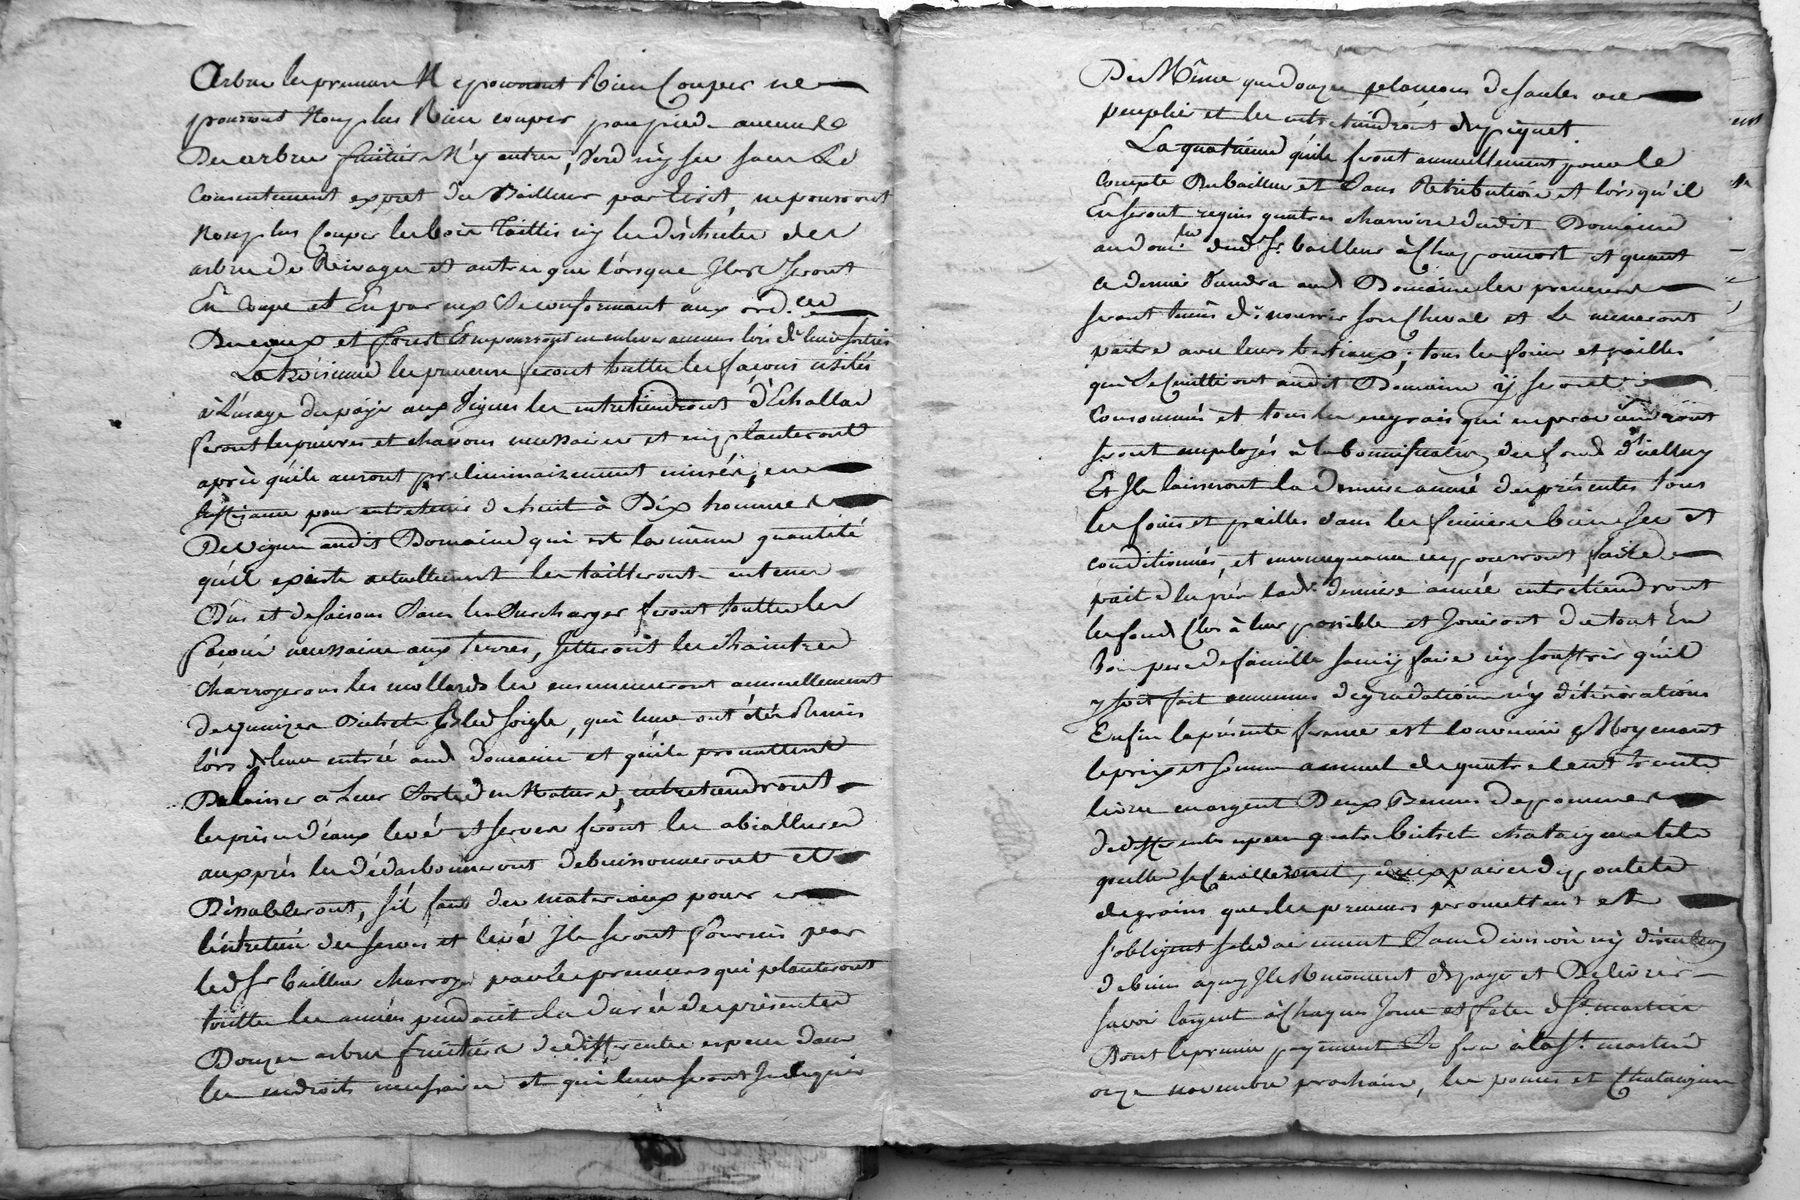 arbres les preneurs N'y pouvront Rien Couper ne
pouront Non plus Rien couper par pied aucuns
Des arbres fruitiers N'y autres, Verd n'y sec sans Le
Consentement exprès du Bailleur par Ecrit, ne pourront
Non plus Couper les bois Taillis ny les des
arbres de Rivages et autres que lorsque Ils Seront
En Coupe et En par eux Se conformant aux ord.ces
Des eaux et forest Et ne pourront en enlever aucuns lors de leurs sorties
La troisieme les preneurs feront touttes les façons usités
à L'usage du païs aux Vignes les entretiendront d'Echallas
feront les et necessaires et en planteront
après qu'ils auront preliminairement minéé, en
suffisance pour entretenir de huit à Dix hommes
De vigne audit Domaine qui est la même quantité
qu'il existe actuellement les tailleront en tems
Dûs et de saisons Sans les Surcharger feront touttes les
façons necessaires aux terres, Jetteront les Chaintres
Charrogeront les mollards les ensemmeront annuellement
de quinze Bichets Bled soigle, qui leurs ont étés Remis
lors de leurs entrée aud Domaine et qu'ils promettent
De laisser à Leur Sortie en Nature, entretiendront
les prises d'eaux levé et serves feront les abiallures
aux prés les debuissonneront et
, s'il faut des materiaux pour
l'entretien des serves et levé Ils seront fournis par
led Sr bailleur charroyé par les preneurs qui planteront
touttes les années pendant la durée des présentes
Douze arbres fruitiers de differentes especes dans
les endroits necessaires et qui leurs seront Indiqués
De Même que douze plançons de saules ou
peupliers et les entretiendront
La quatrieme qu'ils feront annuellement pour le
Compte Du bailleur et Sans Retribution et lorsqu'il
En seront requis quatres charrois dudit Domaine
au domile dud Sr bailleur à et quant
ce dernier Viendra aud Domaine les preneurs
seront tenus de nourrir son Cheval et Le meneront
paitre avec leurs bestiaux; tous les foins et pailles
qui Se Cuilliront audit Domaine y seront
Consommés et tous les engrais qui en proviendront
seront employés à la bonnification des fonds d'icelluy
Et Ils laisseront la Derniere année des présentes tous
les foins et pailles dans les fenieres bien sec et
conditionnés, et en ny pourront faire
paitre les prés lade derniere année entretiendront
les fonds Clos à leur possible et Jouiront du tout En
bon pere de famille sans y faire ny souffrir qu'il
y soit fait aucunes degradations n'y détériorations
Enfin la présente ferme est convenüe Moyenant
le prix et somme annuel de quatre cent trente
livres en argent Deux Bennes de pommes
de differentes especes quatre bichets chataignes telles
quelles se Cuilleront, deux paires de poulets
de grains que les preneurs promettent et
s'obligent solidairement Sans division ny discution
de biens à quoy Ils Renoncent de payer et Delivrer
savoir l'argent à Chaques Jours et fetes de St martin
Dont le premier payement Se fera à la St martin
onze novembre prochain, les pomes et Chataignes